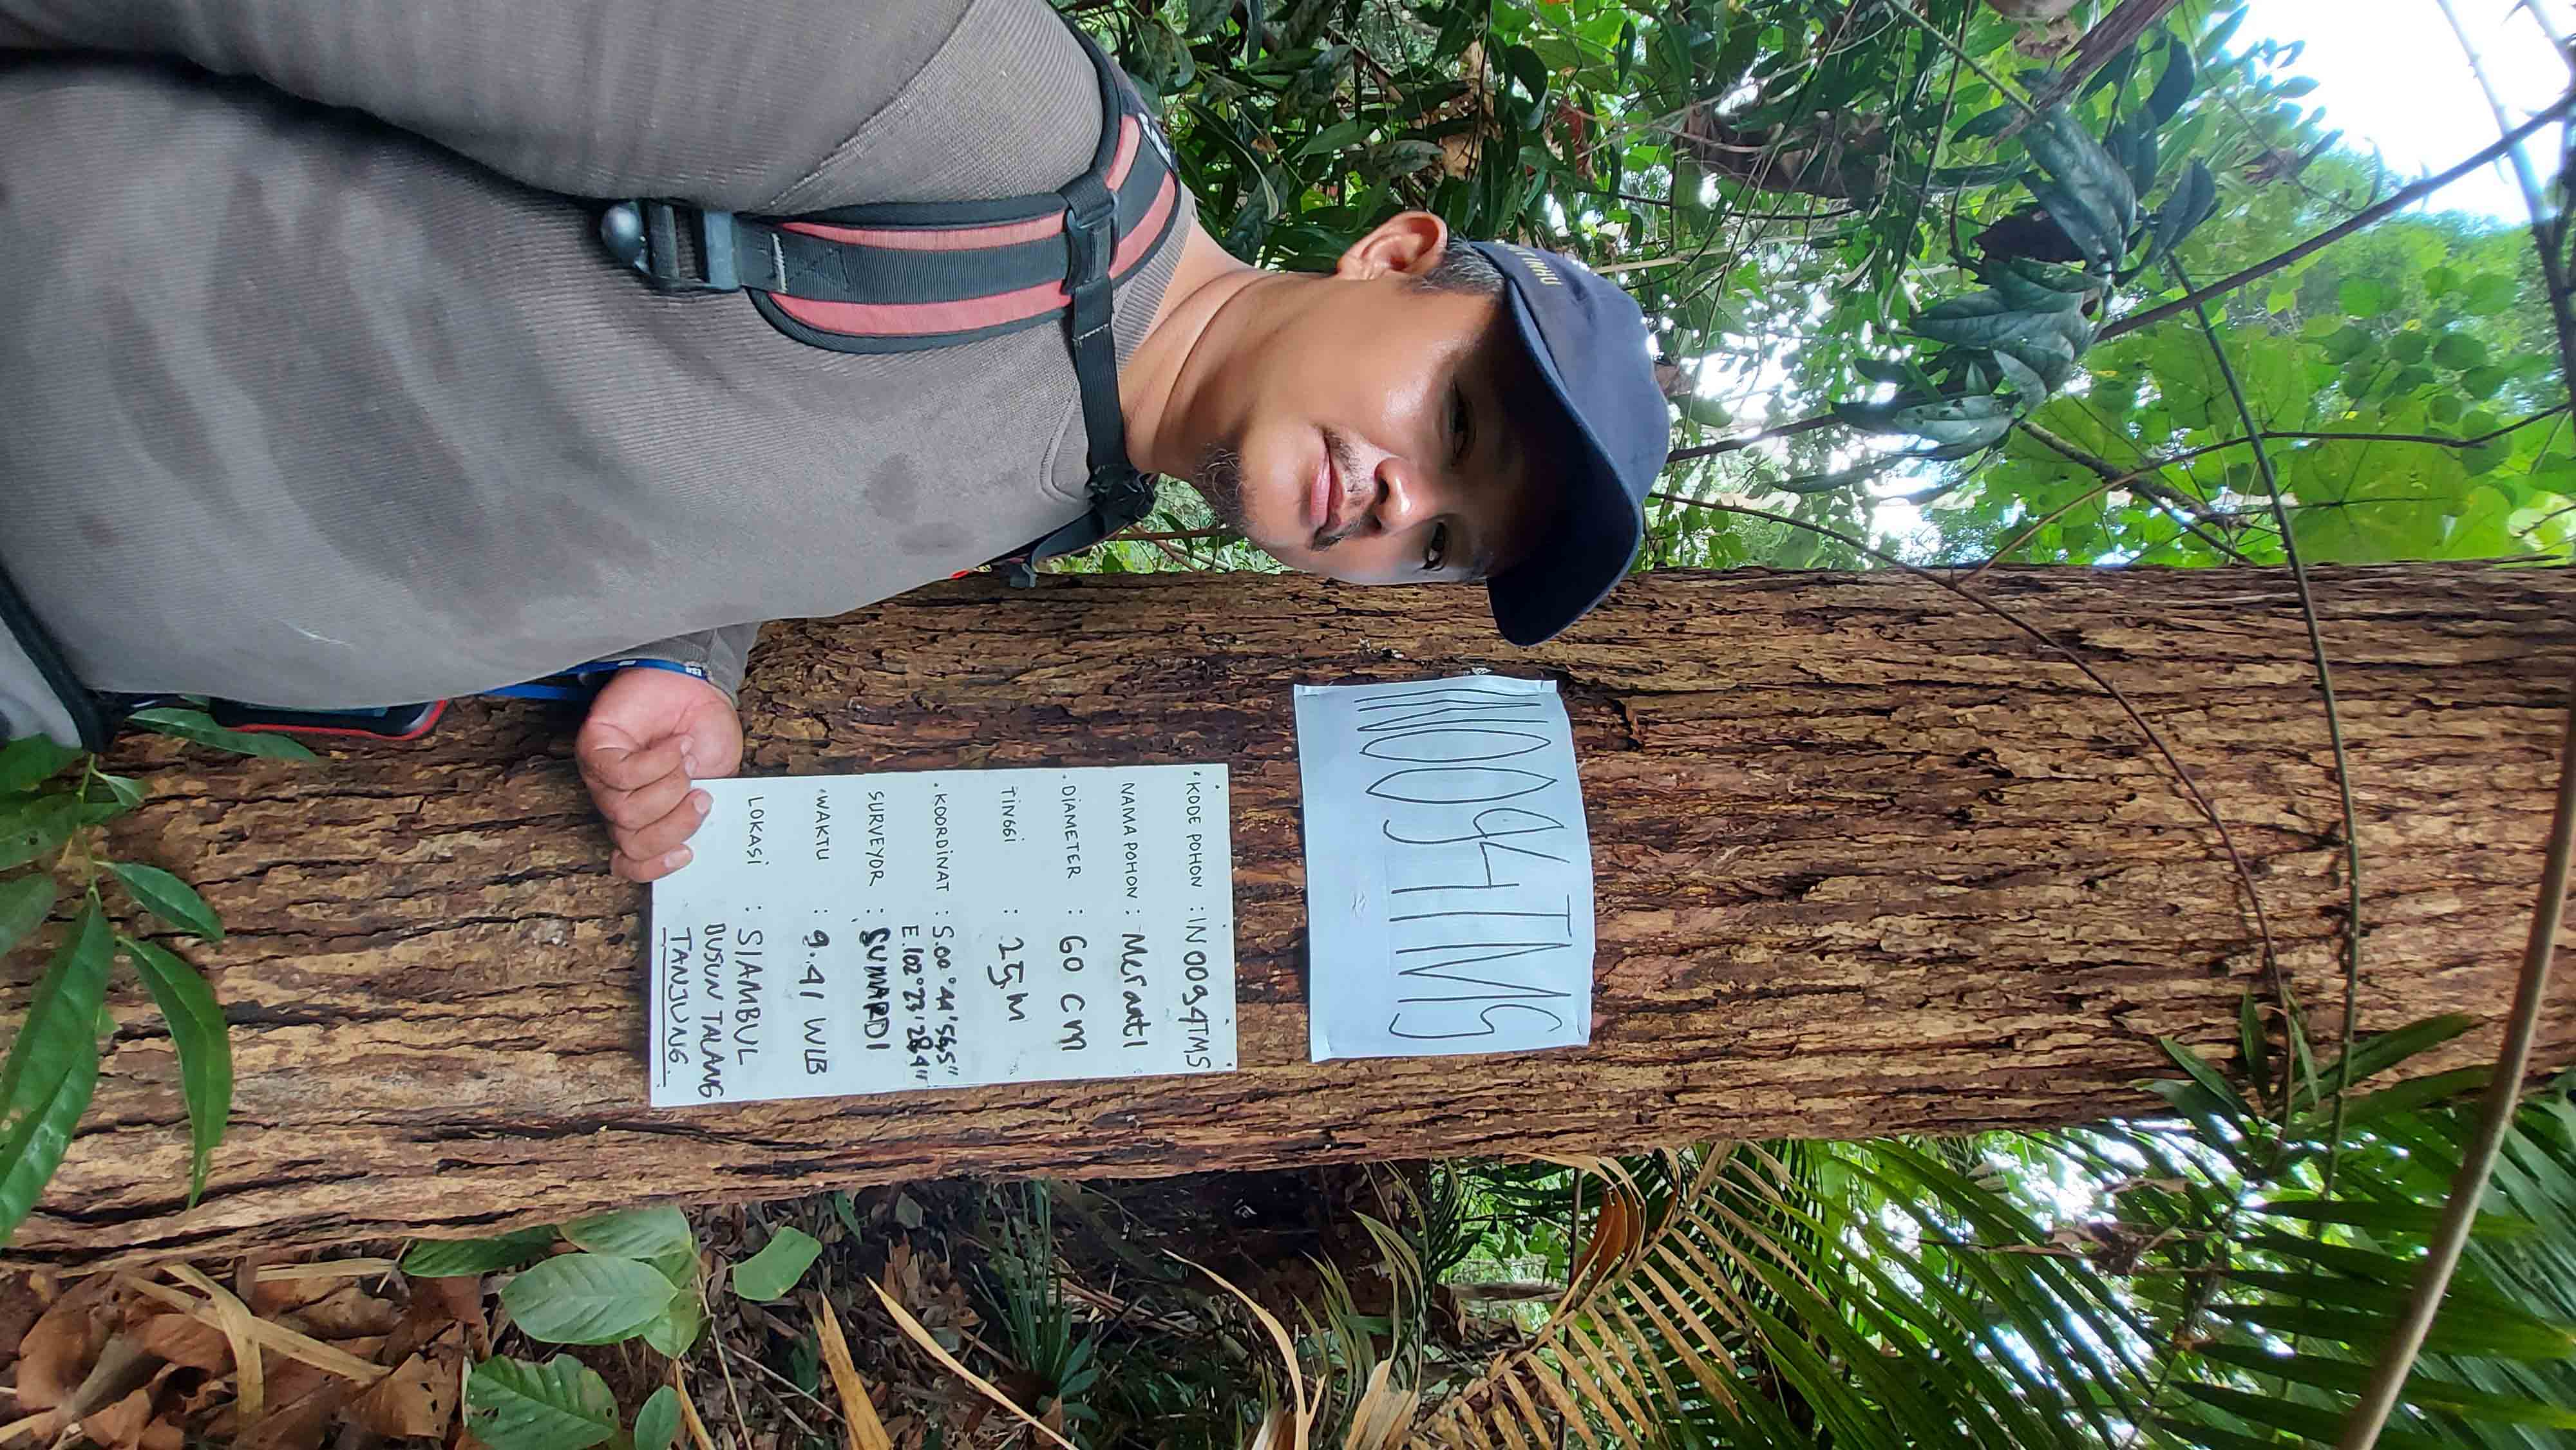 INHU
IN0094TMS
KODE POHON : IN0094TMS
NAMA POHON : Meranti
DIAMETER : 60 cm
TINGGI : 25 m
KOORDINAT : S.00°44'56,5"
E.102°23'28.4"
SURVEYOR : SUMARDI
WAKTU : 9.41 WIB
LOKASI : SIAMBUL
DUSUN TALANG
TANJUNG.